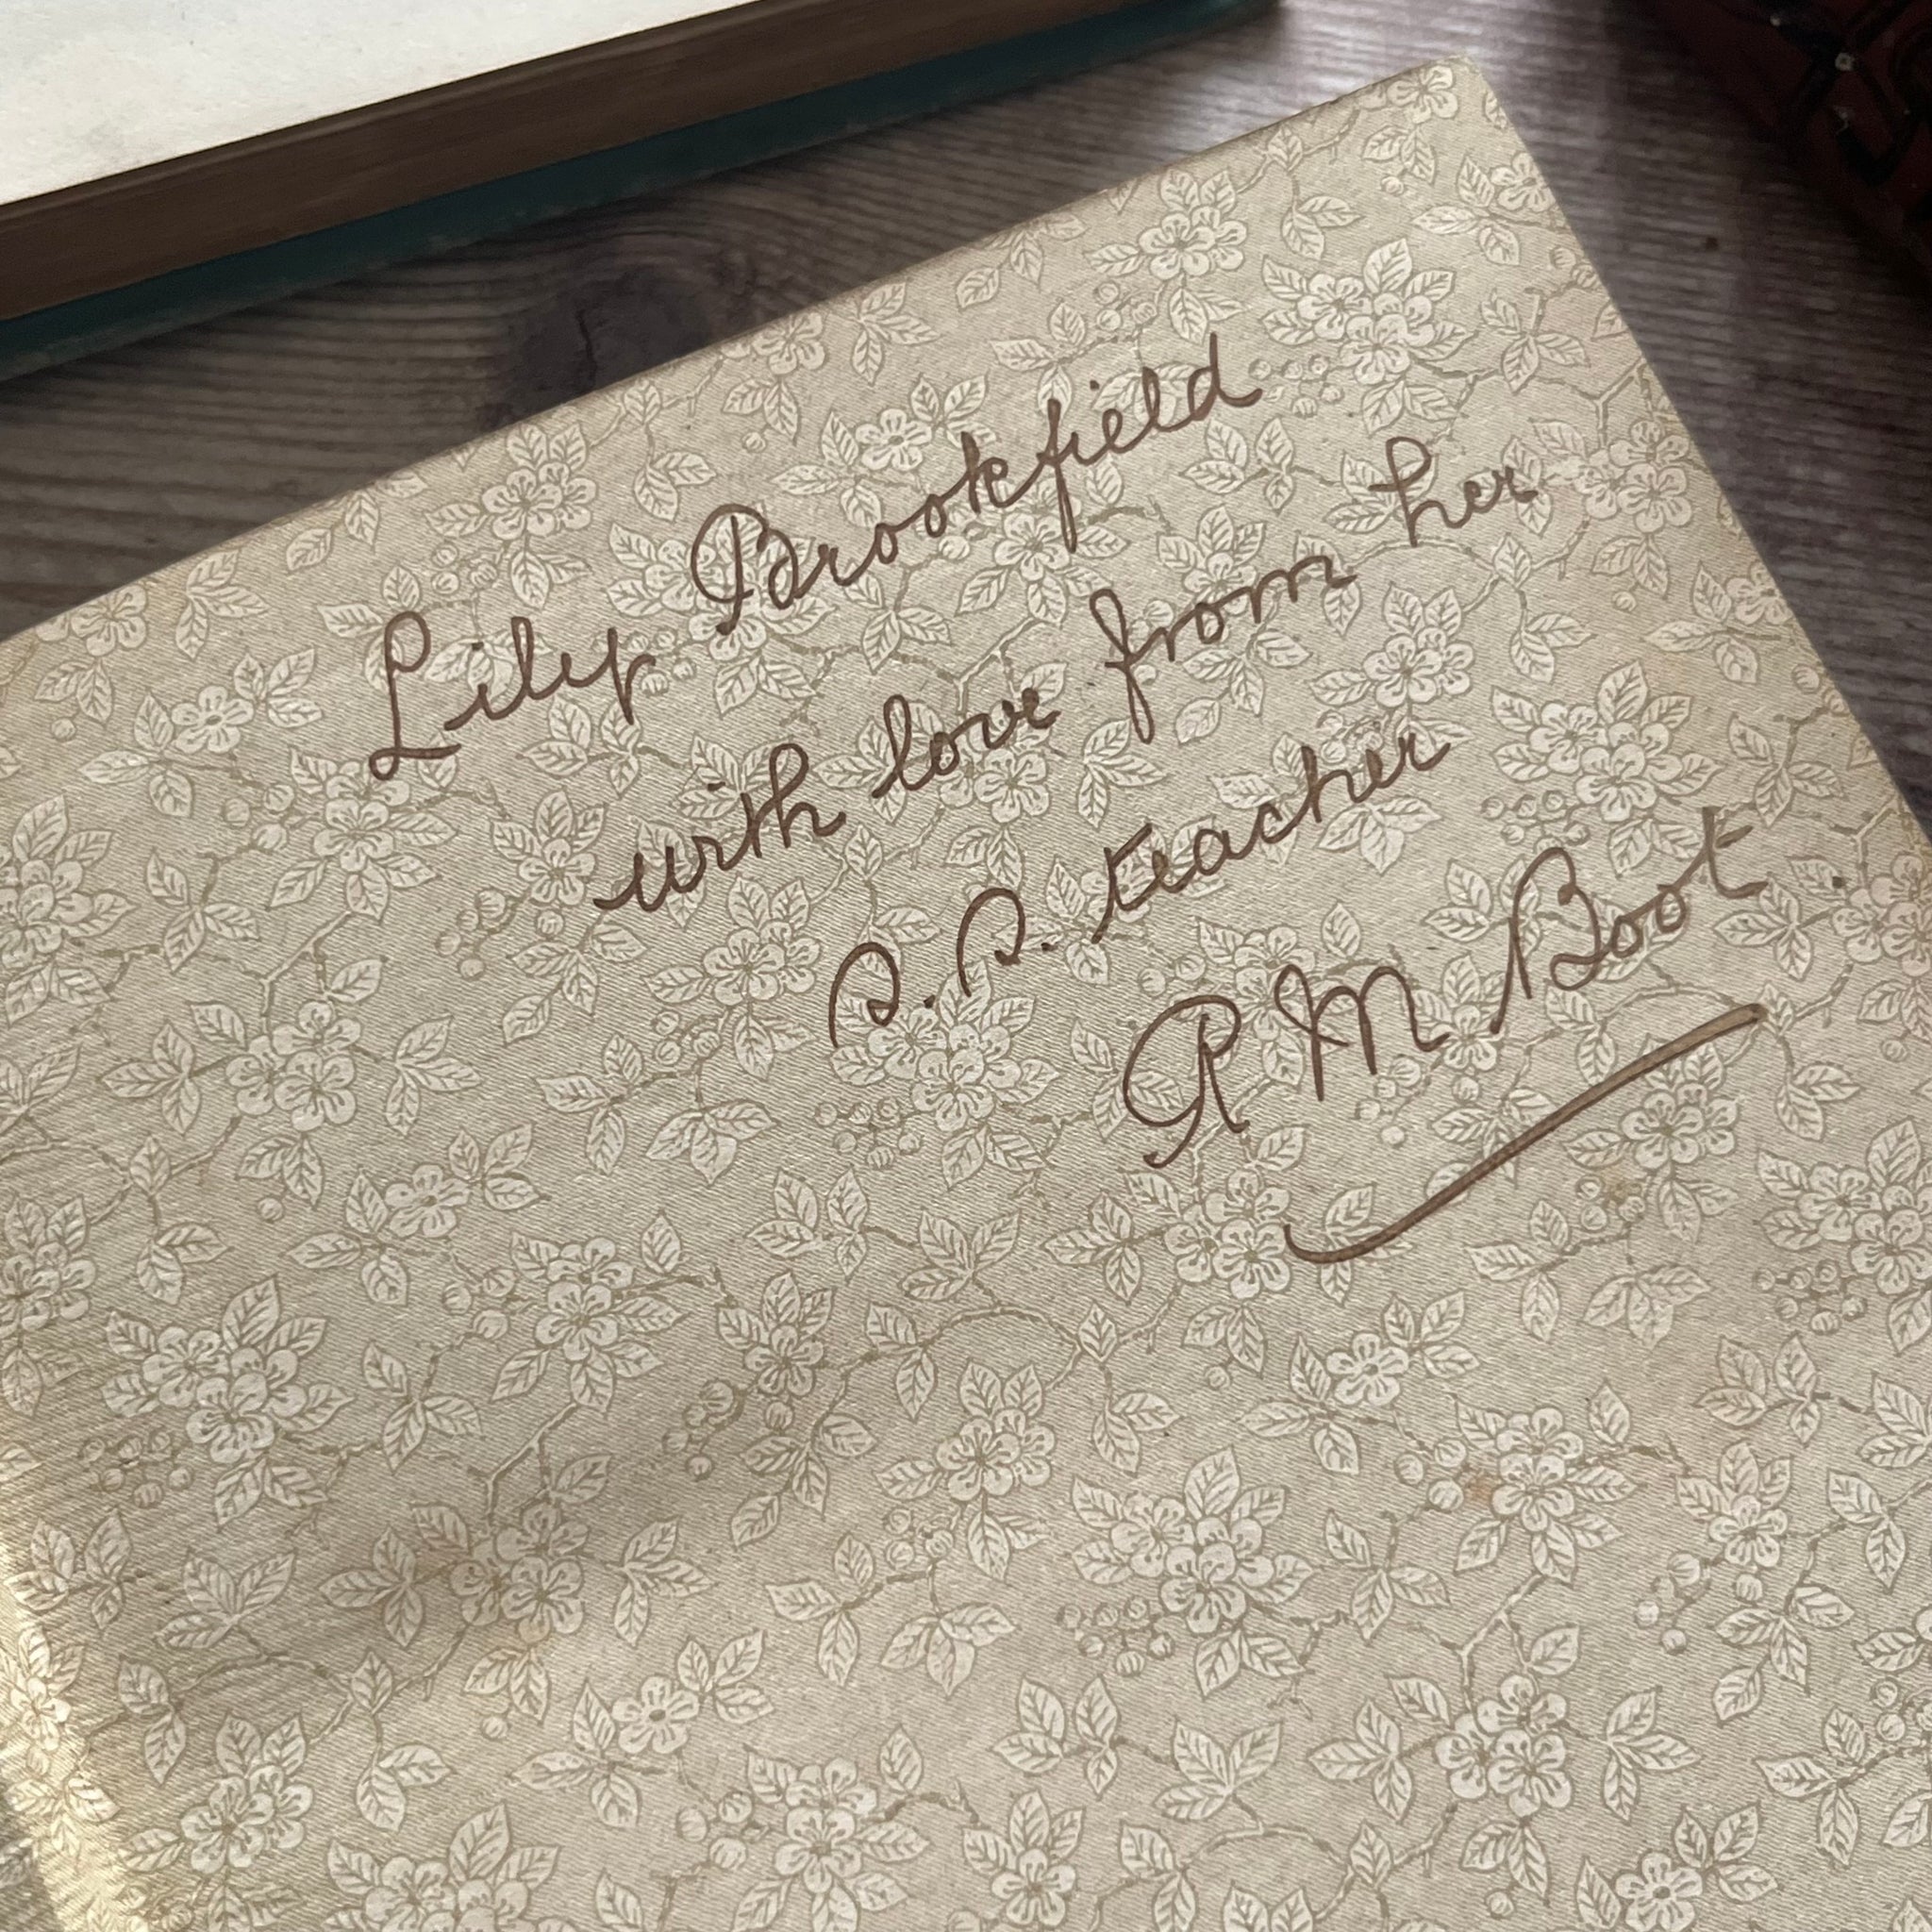 Lily Brookfield
with love from her
S. S. teacher
R M Boot